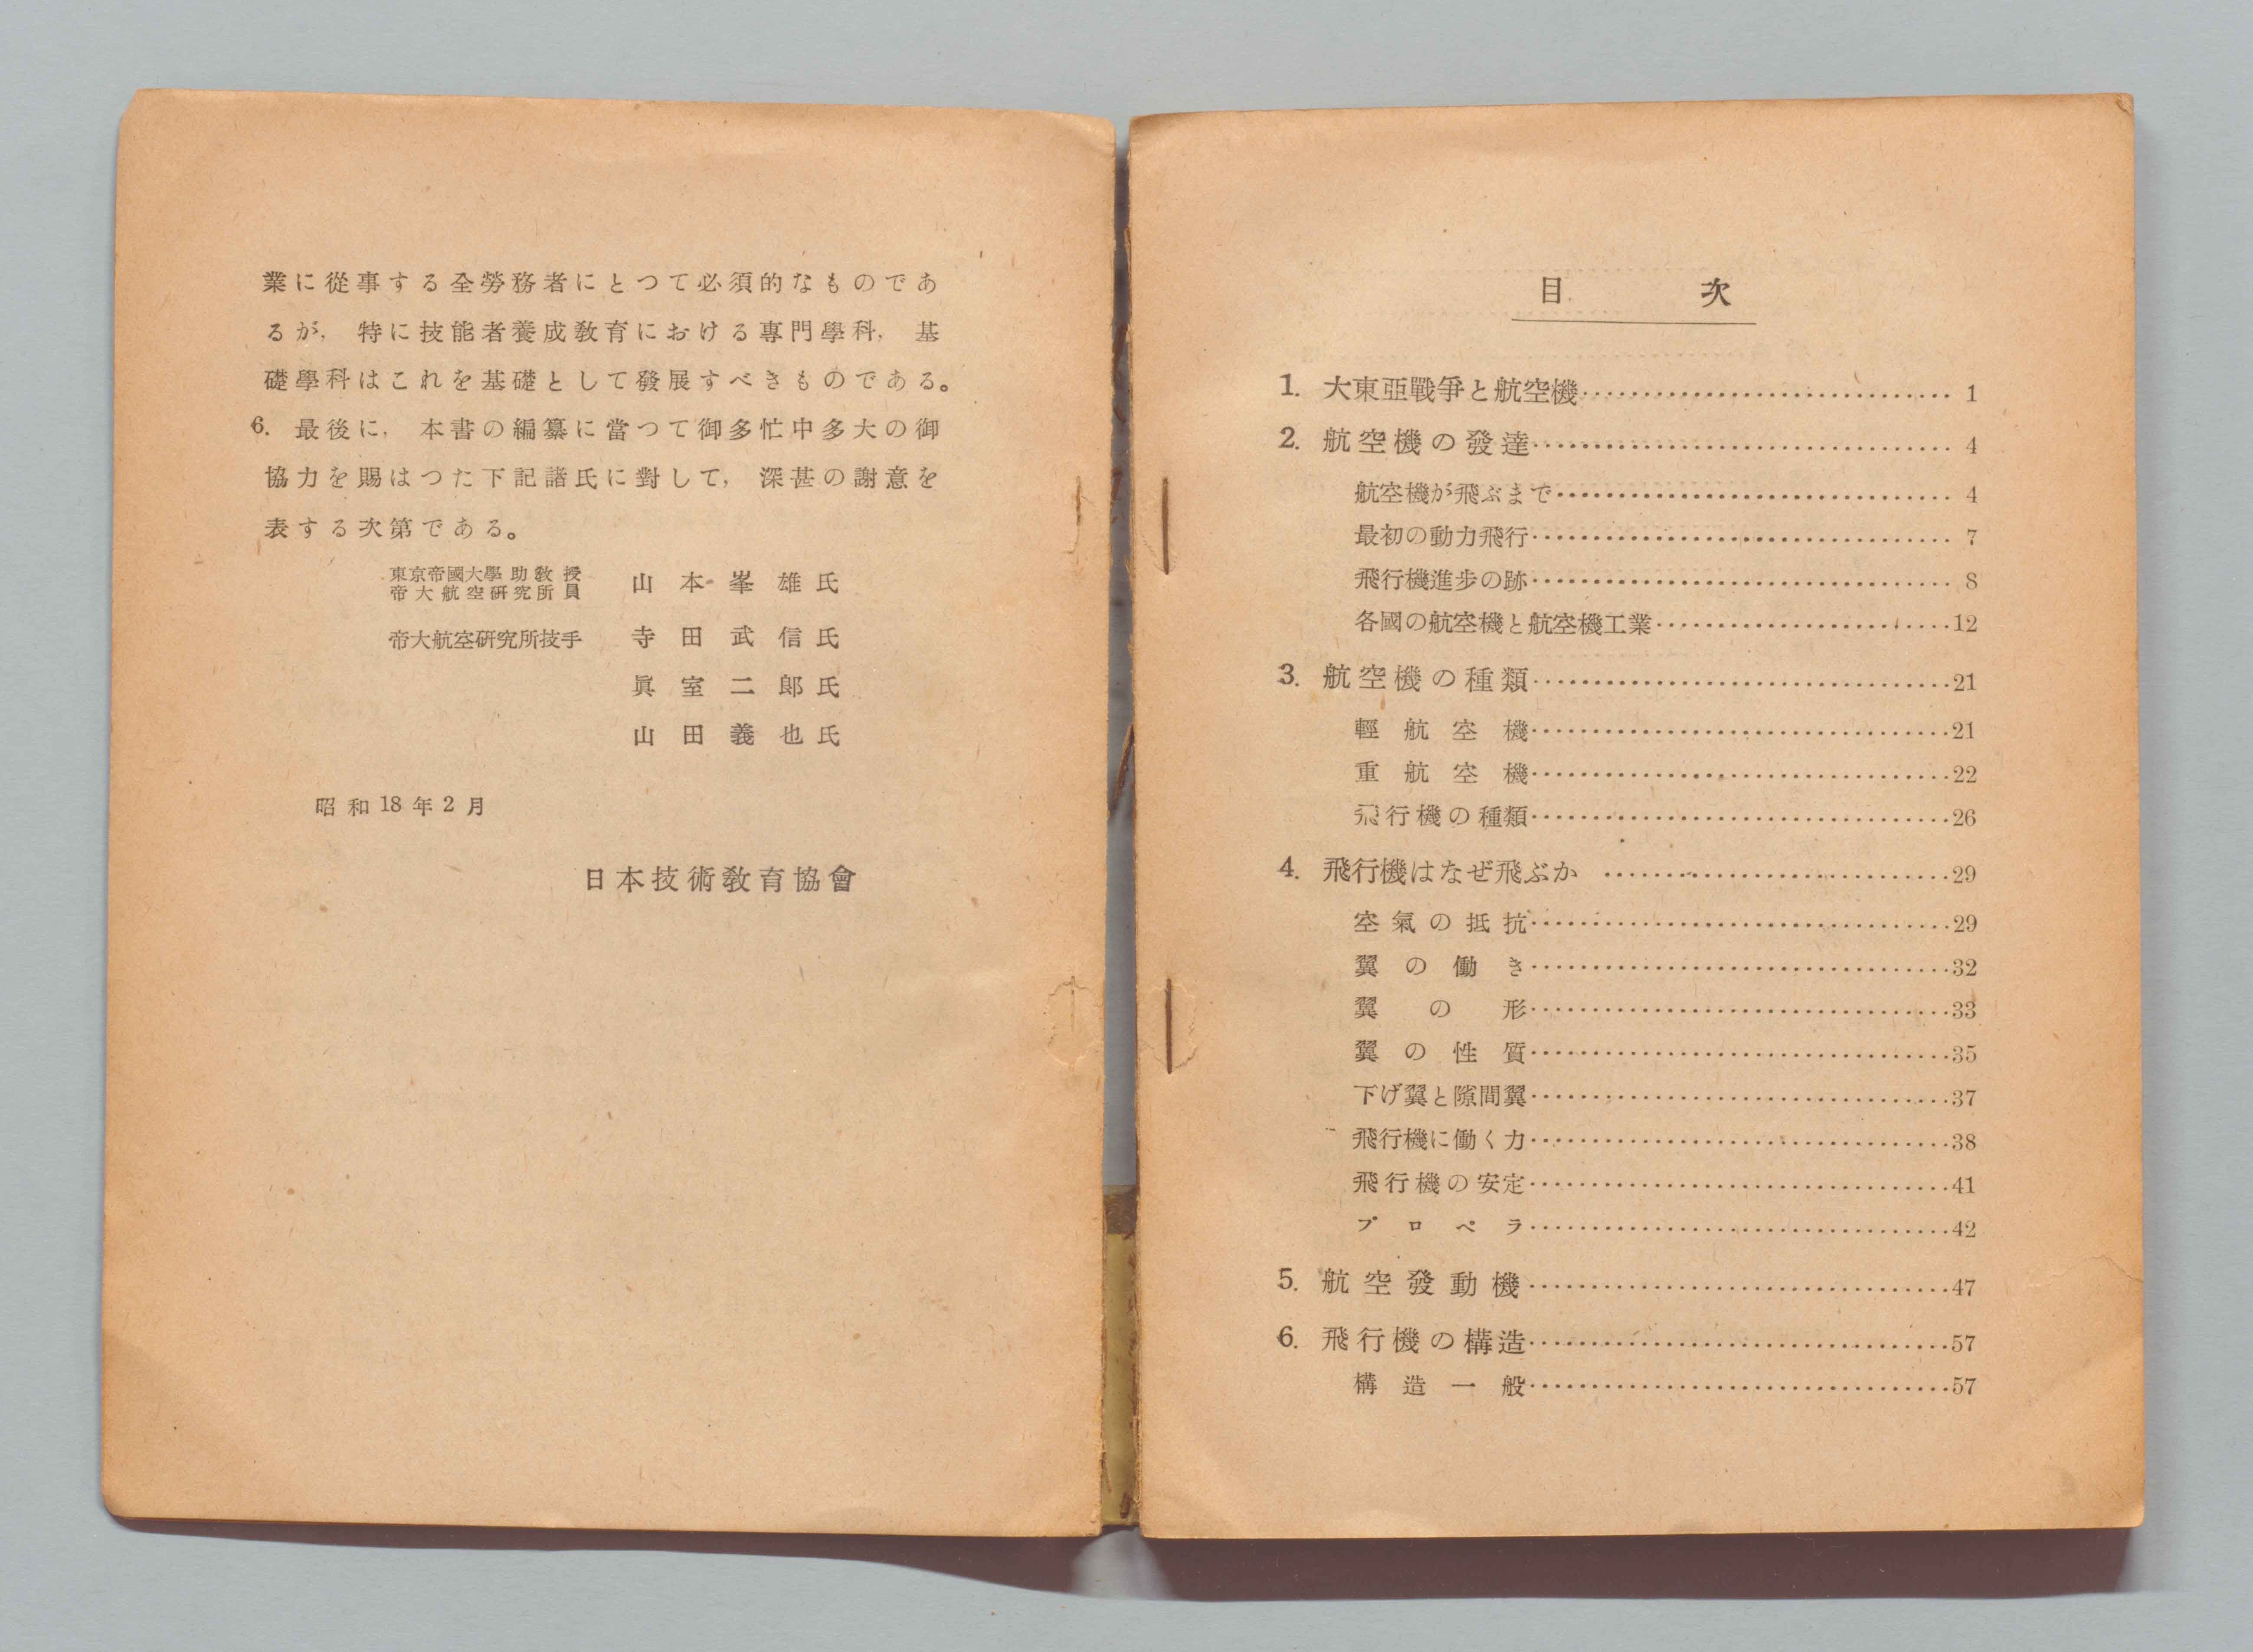 業に從事する全勞務者にとつて必須的なものであ
るが，特に技能者養成教育における專門學科，基
礎學科はこれを基礎として發展すべきものである。
6. 最後に，本書の編纂に當つて御多忙中多大の御
協力を賜はつた下記諸氏に對して，深甚の謝意を
表する次第である。
東京帝國大學助教授
帝大航空研究所員 山本峯雄氏
帝大航空研究所技手 寺田武信氏
眞室二郞氏
山田義也氏
昭和18年2月
日本技術教育協會
目次
1. 大東亞戰爭と航空機……………………………1
2. 航空機の發達……………………………4
航空機が飛ぶまで……………………………4
最初の動力飛行……………………………7
飛行機進步の跡……………………………8
各國の航空機と航空機工業……………………………12
3. 航空機の種類……………………………21
輕航空機……………………………21
重航空機……………………………22
飛行機の種類……………………………26
4. 飛行機はなぜ飛ぶか……………………………29
空氣の抵抗……………………………29
翼の働き……………………………32
翼の形……………………………33
翼の性質……………………………35
下げ翼と隙間翼……………………………37
飛行機に働く力……………………………38
飛行機の安定……………………………41
プロペラ……………………………42
5. 航空發動機……………………………47
6. 飛行機の構造……………………………57
構造一般……………………………57